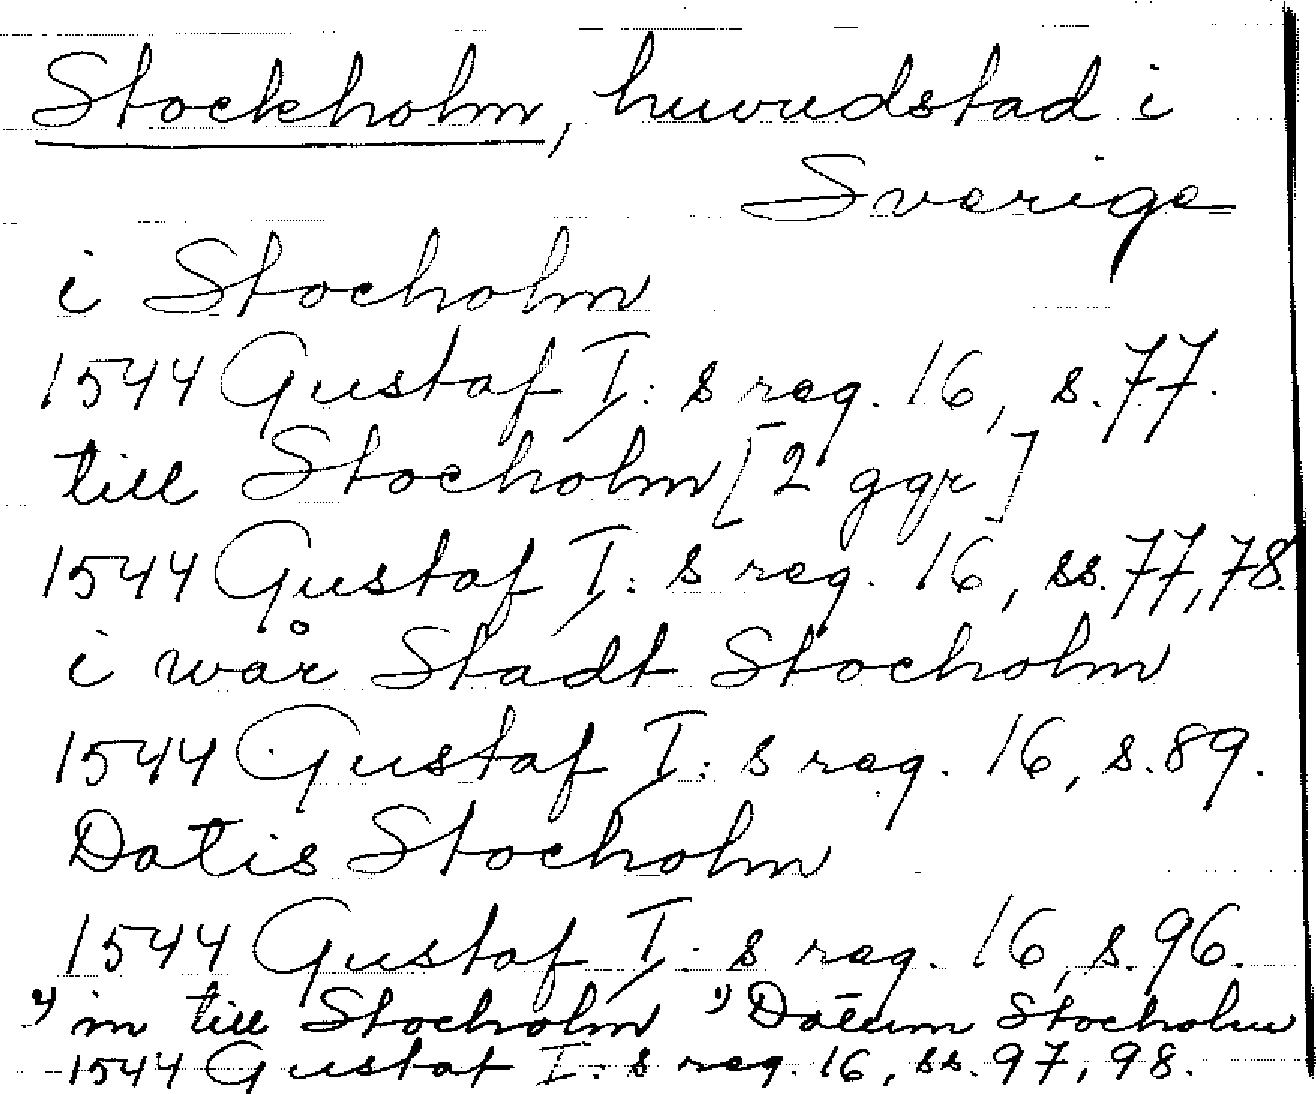 Stockholm, huvudstad i
Sverige
i Stocholm
1544 Gustaf I: s reg. 16, s. 77.
till Stocholm [2 ggr]
1544 Gustaf I: s reg. 16, ss. 77, 78.
i wår Stadt Stocholm
1544 Gustaf I: s reg. 16, s. 89.
Datis Stocholm
1544 Gustaf I: s reg. 16, s. 96.
2) in till Stocholm 1) Datum Stocholm
1544 Gustaf I: s reg. 16, ss. 97, 98.